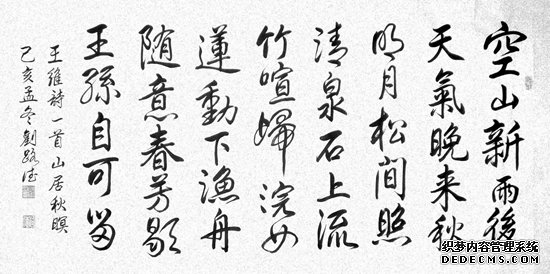 空山新雨後
天氣晚来秋
明月松間照
清泉石上流
竹喧歸浣女
蓮動下漁舟
随意春芳歇
王孫自可留
王維詩一首山居秋暝
己亥孟冬劉路
织梦内容管理系统
DEDECMS.COM